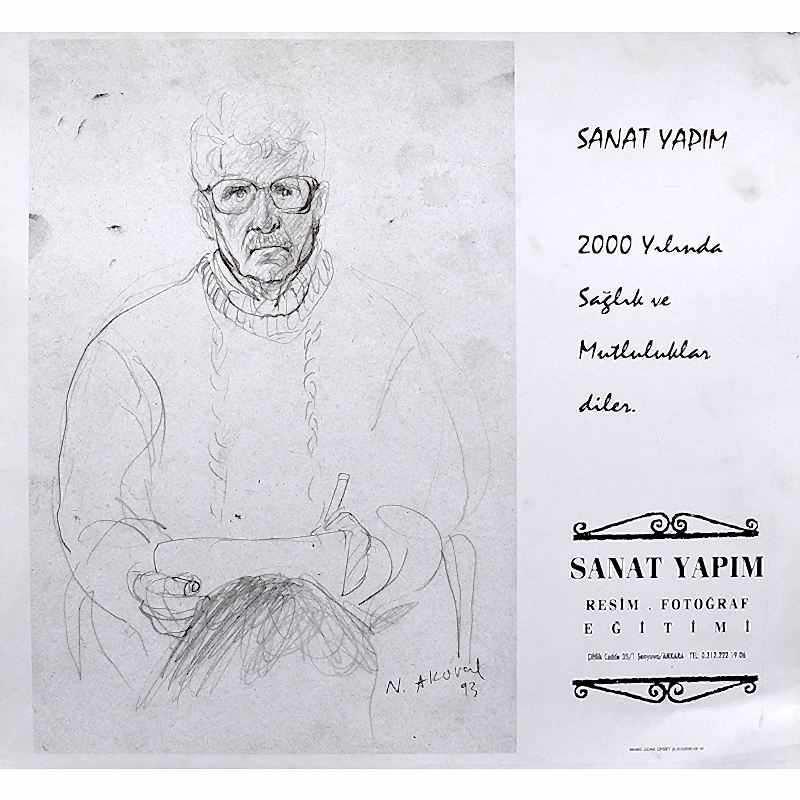 SANAT YAPIM
2000 Yılında
Sağlık ve
Mutluluklar
diler.
SANAT YAPIM
RESİM . FOTOĞRAF
EĞİTİMİ
Çiftlik Cadde 35/1 /ANKARA TEL: 0.312.222 19 06
N. AKOVAL
93